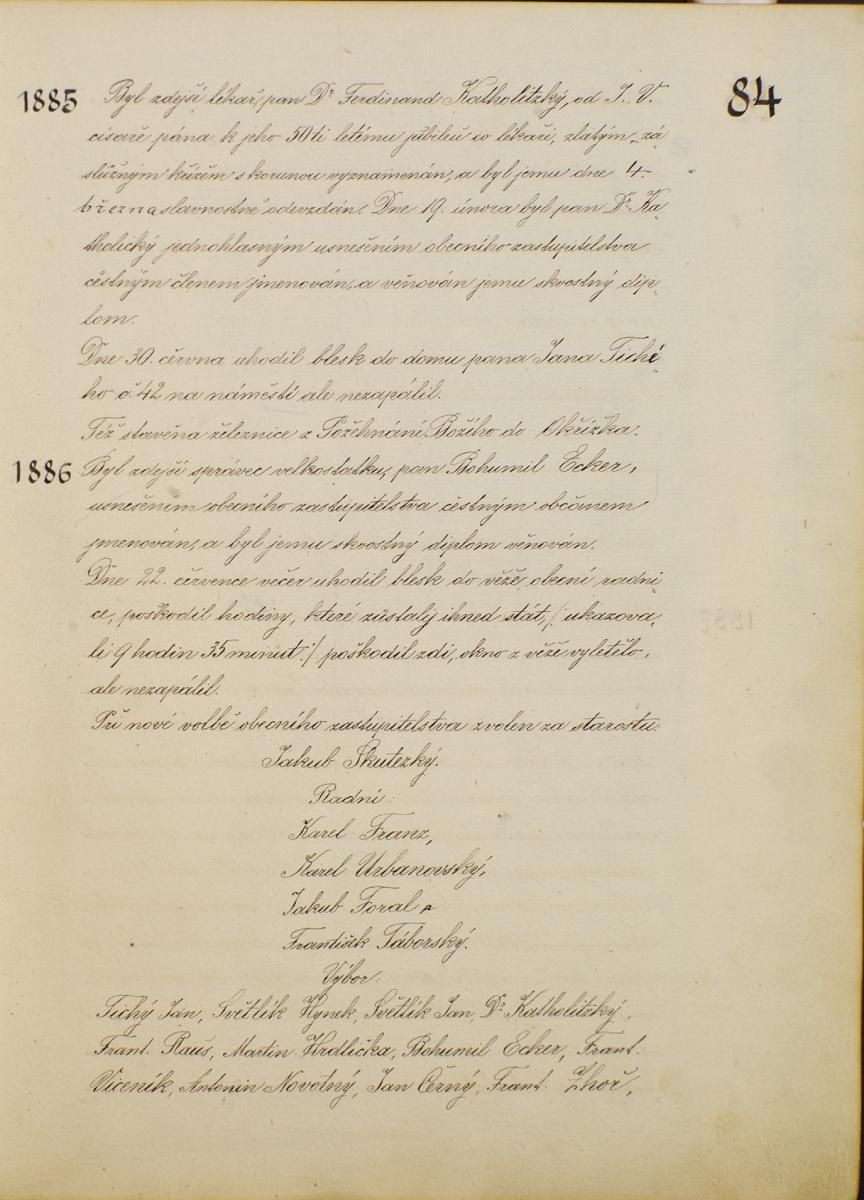 84
1885 Byl zdejší lékař, pan Dr. Ferdinand Katholitzký, od J. V.
císaře pána k jeho 50ti letému jubileu co lékaři, zlatým zá„
služným křížem s korunou vyznamenán, a byl jemu dne 4.
března slavnostně odevzdán. Dne 19. února byl pan Dr. Ka„
tholický jednohlasným usnešením obecního zastupitelstva
čěstným členem jmenován, a věňován jemu skvostný dip„
lom.
Dne 30. června uhodil blesk do domu pana Jana Tiché„
ho č. 42 na náměstí ale nezapálil.
Též stavěna železnice z Požehnání Božího do Okříška.
1886 Byl zdejší správec velkostatku, pan Bohumil Ecker,
usnešením obecního zastupitelstva čěstným občanem
jmenován, a byl jemu skvostný diplom věnován.
Dne 22. července večer uhodil blesk do věže obecní radni„
ce, poškodil hodiny, které zůstaly ihned stát, /: ukazova„
li 9 hodin 35 minut :/ poškodil zdi, okno z věže vyletělo,
ale nezapálil.
Při nové volbě obecního zastupitelstva zvolen za starostu:
Jakub Skutezký.
Radní:
Karel Franz,
Karel Urbanovský,
Jakub Foral a
František Táborský.
Výbor:
Tichý Jan, Světlík Hynek, Světlík Jan, Dr. Katholitzký,
Frant. Rauš, Martin Hrdlička, Bohumil Ecker, Frant.
Viceník, Antonin Novotný, Jan Černý, Frant. Zhoř,